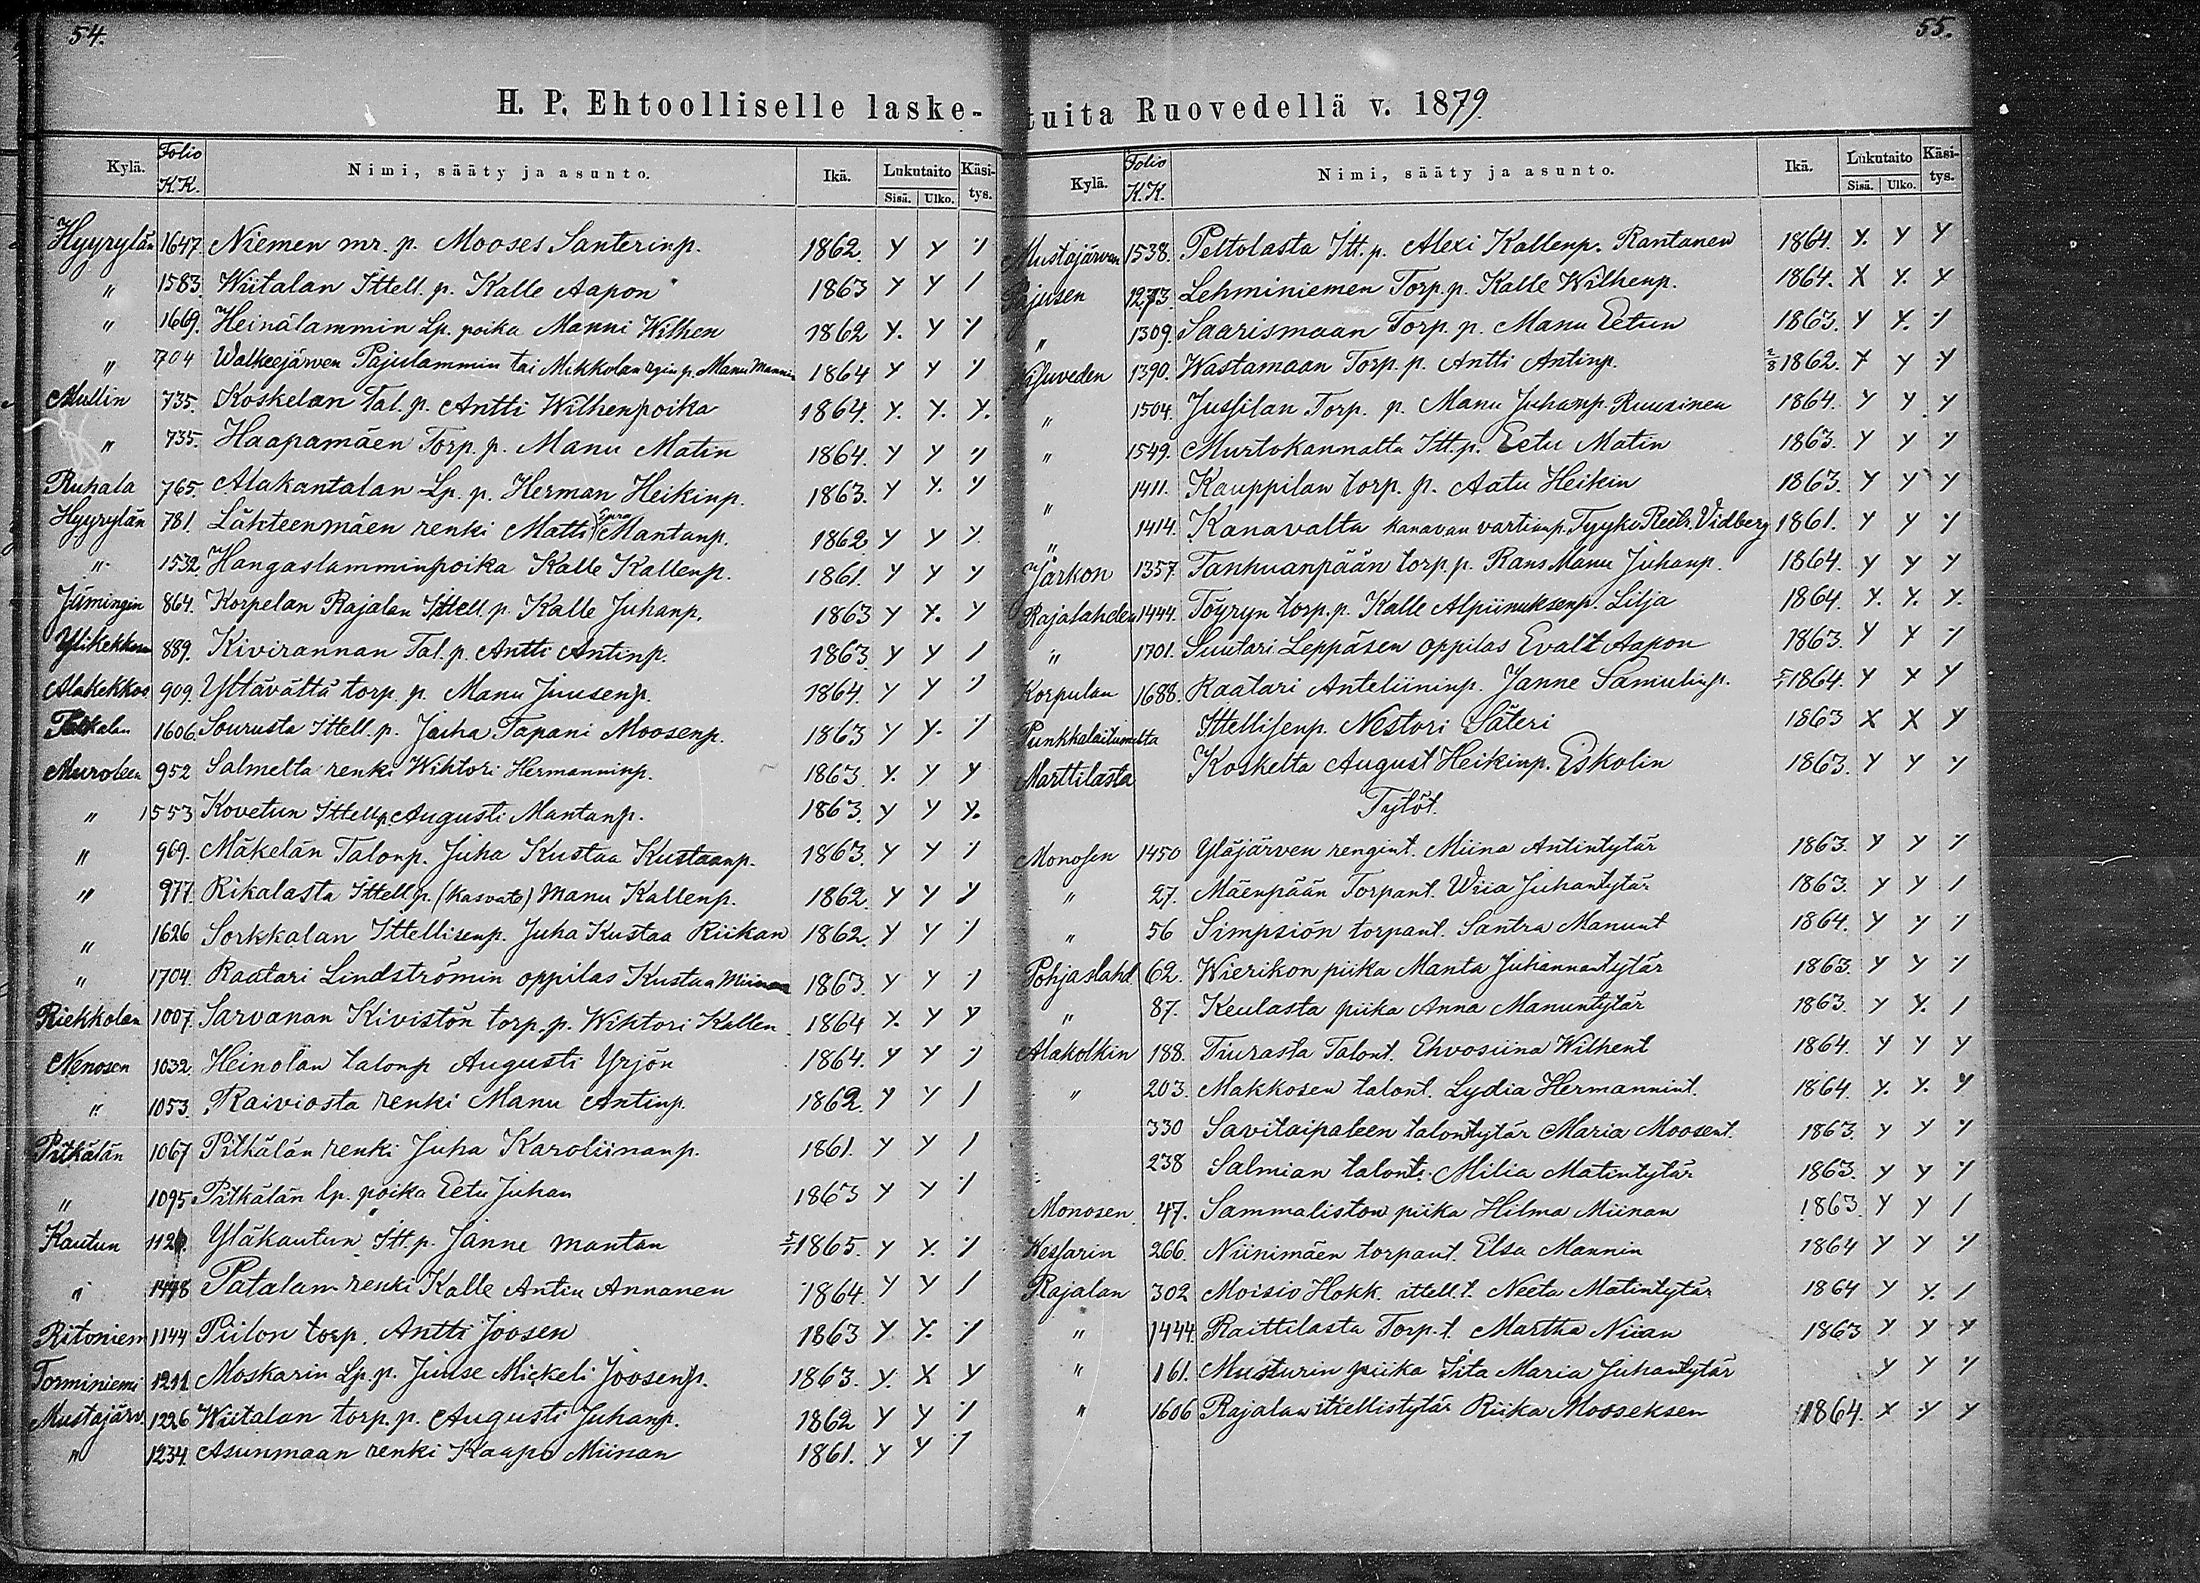 54.
H. P. Ehtoolliselle laske-
Kylä. Folio K.K. Nimi, sääty ja asunto. Ikä. Lukutaito Sisä. Ulko. Käsitys.
Hyyrylän 1647. Niemen mr. p. Mooses Santerinp. 1862. Y Y ·/
" 1583. Wiitalan Ittell. p. Kalle Aapon 1863 Y Y /
" 1669. Heinälammin Lp. poika Manni Wilhen 1862 Y. Y ·/
" 704 Walkeejärven Pajulammin tai Mikkolan rgin p. Manu Mannin 1864 Y Y ·/
Mullin 735. Koskelan Tal. p. Antti Wilhenpoika 1864. Y. Y. Y.
" 735. Haapamäen Torp. p. Manu Matin 1864. Y Y ·/
Ruhala 765. Alakantalan Lp. p. Herman Heikinp. 1863. Y Y. ·/
Hyyrylän 781. Lähteenmäen renki Matti Mantanp. 1862 Y Y Y
" 1532. Hangaslamminpoika Kalle Kallenp. 1861. Y Y Y
Jämingin 864. Korpelan Rajalan Ittell. p. Kalle Juhanp. 1863 Y Y. Y
889. Kivirannan Tal. p. Antti Antinp. 1863. Y Y /
Alakekkos 909. Yltävältä torp. p. Manu Juusenp. 1864. Y Y ·/
1606. Sourusta Ittell. p. Juha Tapani Moosenp. 1863 Y Y. ·/
Muroleen 952 Salmelta renki Wihtori Hermanninp. 1863. Y. Y Y
" 1553 Kovetun Ittellp. Augusti Mantanp. 1863. Y Y Y.
" 969. Mäkelän Talonp. Juha Kustaa Kustaanp. 1863. Y Y ·/
" 977. Rikalasta Ittell. p. (kasvato) Manu Kallenp. 1862. Y Y Y
" 1626 Sorkkalan Ittellisenp. Juha Kustaa Riikan 1862. Y Y ·/
" 1704. Raatari Lindströmin oppilas Kustaa Miinan 1863. Y Y ·/
Riekkolan 1007. Sarvanan Kivistön torp. p. Wihtori Kallen 1864 Y. Y Y
Nenosen 1032. Heinolan talonp Augusti Yrjön 1864. Y Y ·/
" 1053. Raiviosta renki Manu Antinp. 1862. Y Y /
Pitkälän 1067 Pitkälän renki Juha Karoliinanp. 1861. Y Y /
" 1095. Pitkälän lp. poika Eetu Juhan 1863 Y Y ·/
Kautun Yläkautun Itt. p. Janne Mantan 5/1 1865. Y Y. ·/
" Patalan renki Kalle Antin Annanen 1864. Y Y /
Ritoniem 1144 Piilon torp. Antti Joosen 1863 Y Y. ·/
Torminiemi 1211 Moskarin Lp. p. Juuse Mickeli Joosenp. 1863. Y. X Y
Mustajärv. 1226 Wiitalan torp. p. Augusti Juhanp. 1862 Y Y ·/
" 1234. Asunmaan renki Kaapo Miinan 1861. Y Y ·/
55.
tuita Ruovedellä v. 1879.
Kylä. Folio K.K. Nimi, sääty ja asunto. Ikä. Lukutaito Sisä. Ulko. Käsitys.
Mustajärven 1538. Peltolasta Itt. p. Alexi Kallenp. Rantanen 1864. Y. Y Y
1273. Lehminiemen Torp. p. Kalle Wilhenp. 1864. X Y. Y
" 1309. Saarismaan Torp. p. Manu Eetun 1863. Y Y. ·/
Visuveden 1390. Wastamaan Torp. p. Antti Antinp. 2/8 1862. Y Y Y
" 1504. Jussilan Torp. p. Manu Juhanp. Ruusinen 1864. Y Y Y
" 1549. Murtokannalta Itt. p. Eetu Matin 1863. Y Y ·/
" 1411. Kauppilan torp. p. Aatu Heikin 1863. Y Y Y
" 1414. Kanavalta kanavan vartianp. Tyyko Vidberg 1861. Y Y ·/
Jäkon 1357. Tanhuanpään torp. p. Rans Manu Juhanp. 1864. Y Y Y
Rajalahden 1444. Töyryn torp. p. Kalle Alpiinuksenp. Lilja 1864. Y. Y. Y.
" 1701. Suutari Leppäsen oppilas Evalt Aapon 1863. Y Y ·/
Korpulan 1688. Raatari Anteliininp. Janne Samulinp. 5/1 1864. Y Y Y
Punkkalaitumelta Ittellisenp. Nestori Säteri 1863 X X Y
Marttilasta Koskelta August Heikinp. Eskolin 1863. Y Y Y
Tytöt.
Monosen 1450 Yläjärven rengint. Miina Antintytär 1863. Y Y ·/
" 27. Mäenpään Torpant. Wiia Juhantytär 1863. Y Y /
" 56 Simpsiön torpant. Santra Manunt 1864. Y Y ·/
Pohjaslahd. 62. Wierikon piika Manta Juhannantytär 1863. Y Y ·/
" 87. Keulasta piika Anna Manuntytär 1863. Y Y. /
Alakolkin 188. Tiurasta Talont. Ehvosiina Wilhent 1864. Y Y Y
" 203. Makkosen talont. Lydia Hermannint. 1864. Y. Y. Y
330 Savitaipaleen talontytär Maria Moosent. 1863. Y Y ·/
238 Salmian talont. Milia Matintytär 1863. Y Y ·/
Monosen 47. Sammaliston piika Hilma Miinan 1863. Y Y /
Wessarin 266. Niinimäen torpant. Elsa Mannin 1864 Y Y ·/
Rajalan 302 Moisio Hokk. ittell. t. Neeta Matintytär 1864 Y Y. /
" 1444. Raittilasta Torp. t. Martha Niian 1863 Y Y Y
" 161. Musturin piika Iita Maria Juhantytär Y Y ·/
" 1606 Rajalan ittellistytär Riika Mooseksen 1864. X Y Y